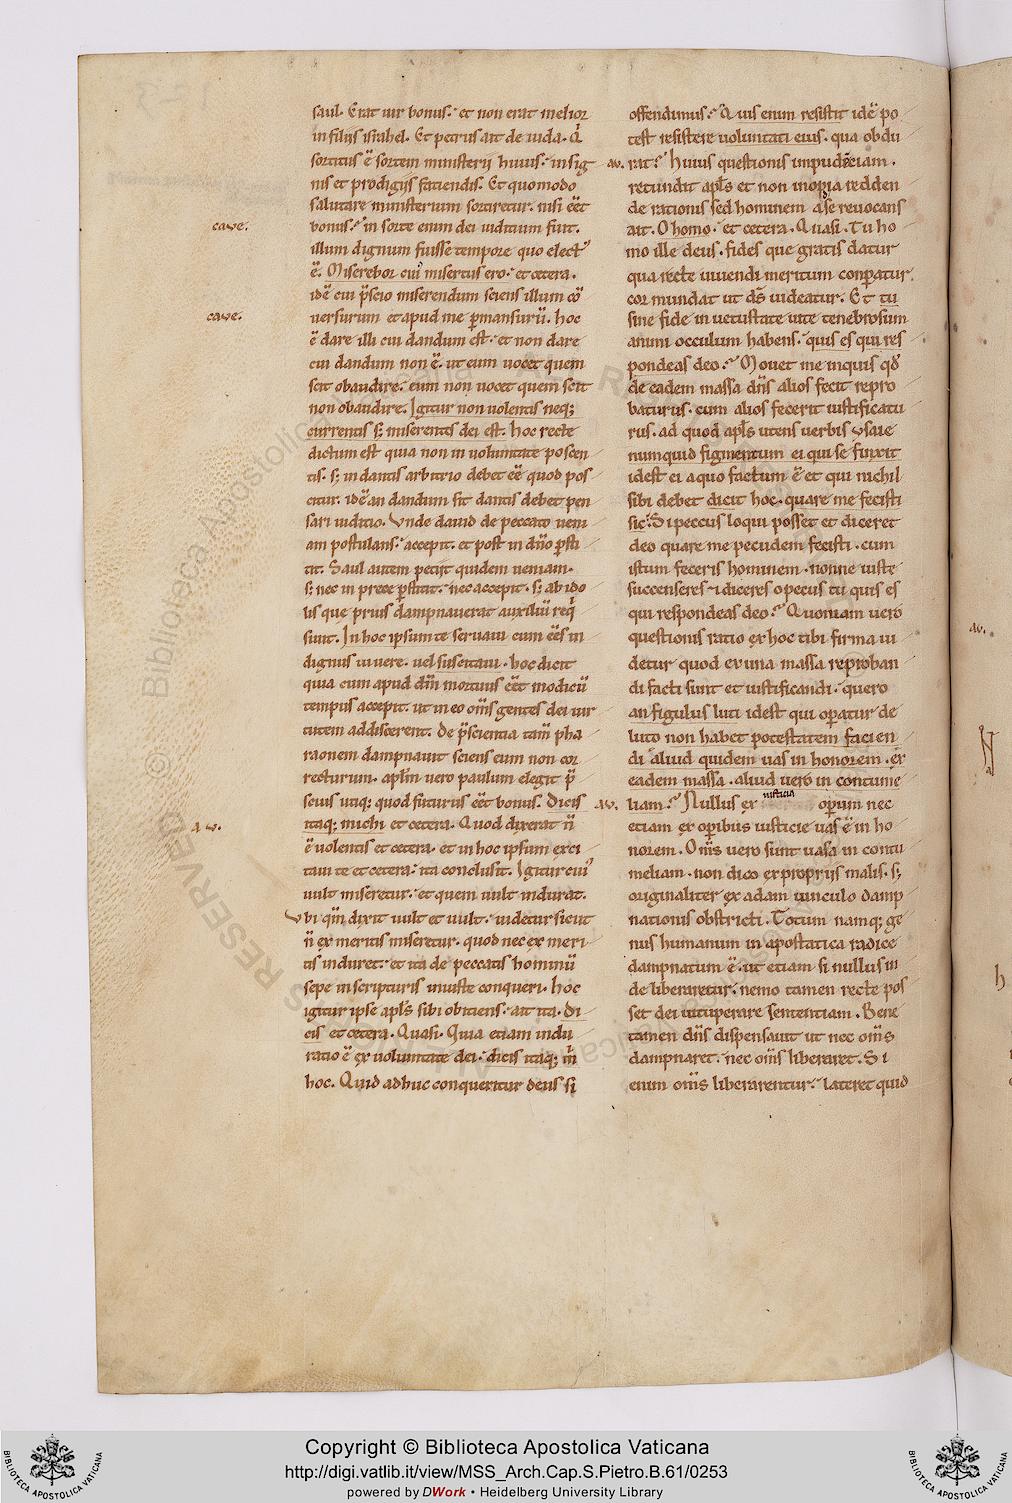 saul. Erat uir bonus. et non erat melior
in filijs israhel. Et petrus ait de iuda. Q̄
sortitus ē sortem ministerij huius. in sig
nis et prodigijs faciendis. Et quomodo
salutare ministerium sortiretur. nisi eēt
caue.
bonus. in sorte enim dei iudicium fuit.
illum dignum fuisse tempore quo elect᾿
ē. Miserebor cui misertus ero. et cetera.
idē cui p̄scio miserendum sciens illum cō
caue.
uersurum et apud me pmansurū. hoc
ē dare illi cui dandum est. et non dare
cui dandum non ē. ut eum uocet quem
scit obaudire. eum non uocet quem scit
non obaudire. Igitur non uolentis neq;
currentis s; miserentis dei est. hoc recte
dictum est quia non in uoluntate poscen
tis. s; in dantis arbitrio debet eē quod pos
citur. idē an dandum sit dantis debet pen
sari iudicio. Vnde dauid de peccato ueni
am postulans. accepit. et post in dn̄o psti
tit. Saul autem petijt quidem ueniam.
s; nec in prece pstitit. nec accepit. s; ab ido
lis que prius dampnauerat auxiliū req̄
siuit. In hoc ipsum te seruaui cum eēs in
dignus uiuere. uel suscitaui. hoc dicit
quia cum apud dm̄ mortuus eēt modicū
tempus accepit. ut in eo om̄s gentes dei uir
tutem addiscerent. De p̄scientia tam̄ pha
raonem dampnauit sciens eum non cor
recturum. aplm̄ uero paulum elegit p̄
scius utiq; quod futurus eēt bonus. Dicis
au.
itaq; michi et cetera. Quod dixerat n̄
ē uolentis et cetera. et in hoc ipsum exci
taui te et cetera. ita conclusit. Igitur cui᾿
uult miseretur. et quem uult indurat.
Vbi qm̄ dixit uult et uult. uidetur sicut
n̄ ex meritis miseretur. quod nec ex meri
tis induret. et ita de peccatis hominū
sepe in scripturis iniuste conqueri. hoc
igitur ipse apl̄s sibi obiciens. ait ita. di
cis et cetera. Quasi. Quia etiam indu
ratio ē ex uoluntate dei. dicis itaq; m̄
hoc. Quid adhuc conqueritur deus si
offendimus. Quis enim resistit idē po
test resistere uoluntati eius. qua obdu
au.
rat. Huius questionis impudenciam.
retundit apl̄s et non inopia redden
de rationis sed hominem a se reuocans
ait. O homo. et cetera. Quasi. Tu ho
mo ille deus. fides que gratis datur
qua recte uiuendi meritum conparatur.
cor mundat ut ds̄ uideatur. Et tu
sine fide in uetustate uite tenebrosum
animi occulum habens. quis es qui res
pondeas deo. Mouet me inquis qd̄
de eadem massa dn̄s alios fecit repro
baturus. cum alios fecerit iustificatu
rus. ad quod apl̄s utens uerbis ysaie
numquid figmentum ei qui se finxit
idest ei a quo factum ē et qui nichil
sibi debet dicit hoc. quare me fecisti
sic. Si peccus loqui posset et diceret
deo quare me pecudem fecisti. cum
istum feceris hominem. nonne iuste
succenseres. diceres o pecus tu quis es
qui respondeas deo. Quoniam uero
questionis ratio ex hoc tibi firma ui
detur quod ex una massa reproban
di facti sunt et iustificandi. quero
an figulus luti idest qui opatur de
luto non habet potestatem facien
di aliud quidem uas in honorem. ex
eadem massa. aliud uero in contume
au.
liam. Nullus ex iusticia opum nec
etiam ex opibus iusticie uas ē in ho
norem. Om̄s uero sunt uasa in contu
meliam. non dico ex proprijs malis. s;
originaliter ex adam uinculo damp
nationis obstricti. Totum namq; ge
nus humanum in apostatica radice
dampnatum ē. ut etiam si nullus in
de liberaretur. nemo tamen recte pos
set dei uituperare sententiam. Bene
tamen dn̄s dispensauit ut nec om̄s
dampnaret. nec om̄s liberaret. Si
enim om̄s liberarentur. lateret quid
au.
N
h
Copyright © Biblioteca Apostolica Vaticana
http://digi.vatlib.it/view/MSS_Arch.Cap.S.Pietro.B.61/0253
powered by DWork • Heidelberg University Library
BIBLIOTECA APOSTOLICA VATICANA
BIBLIOTECA APOSTOLICA VATICANA